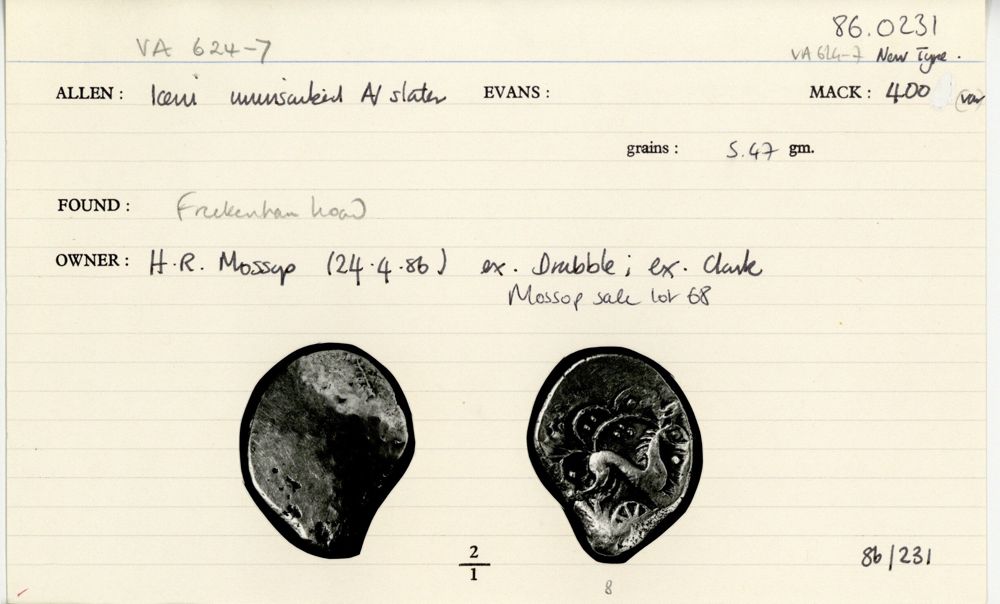 86.0231
VA 624-7
VA 624-7 New Type.
ALLEN: Iceni uninscribed AV stater EVANS: MACK: 400 (var
grains: 5.47 gm.
FOUND: Freckenham hoard
OWNER: H.R. Mossop (24.4.86) ex. Drabble; ex. Clark
Mossop sale lot 68
2
1
86/231
8